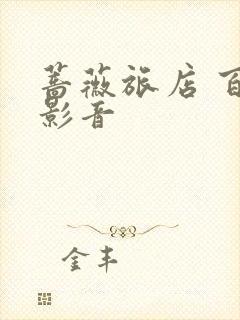 蔷薇旅店 百
影音
金丰